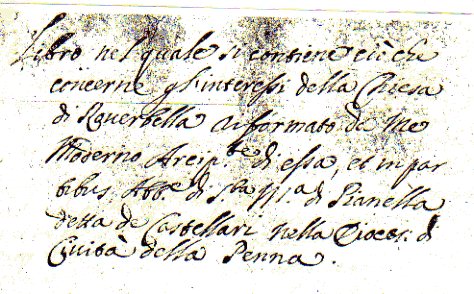 Libro nel quale si contiene ciò che
concerne gl'interessi della Chiesa
di riformato da me
Moderno Arcip.te di essa, et in par
tibus Abb.e di S.ta M.a di Pianella
detta de Castellari nella Dioces. di
Cività della Penna.